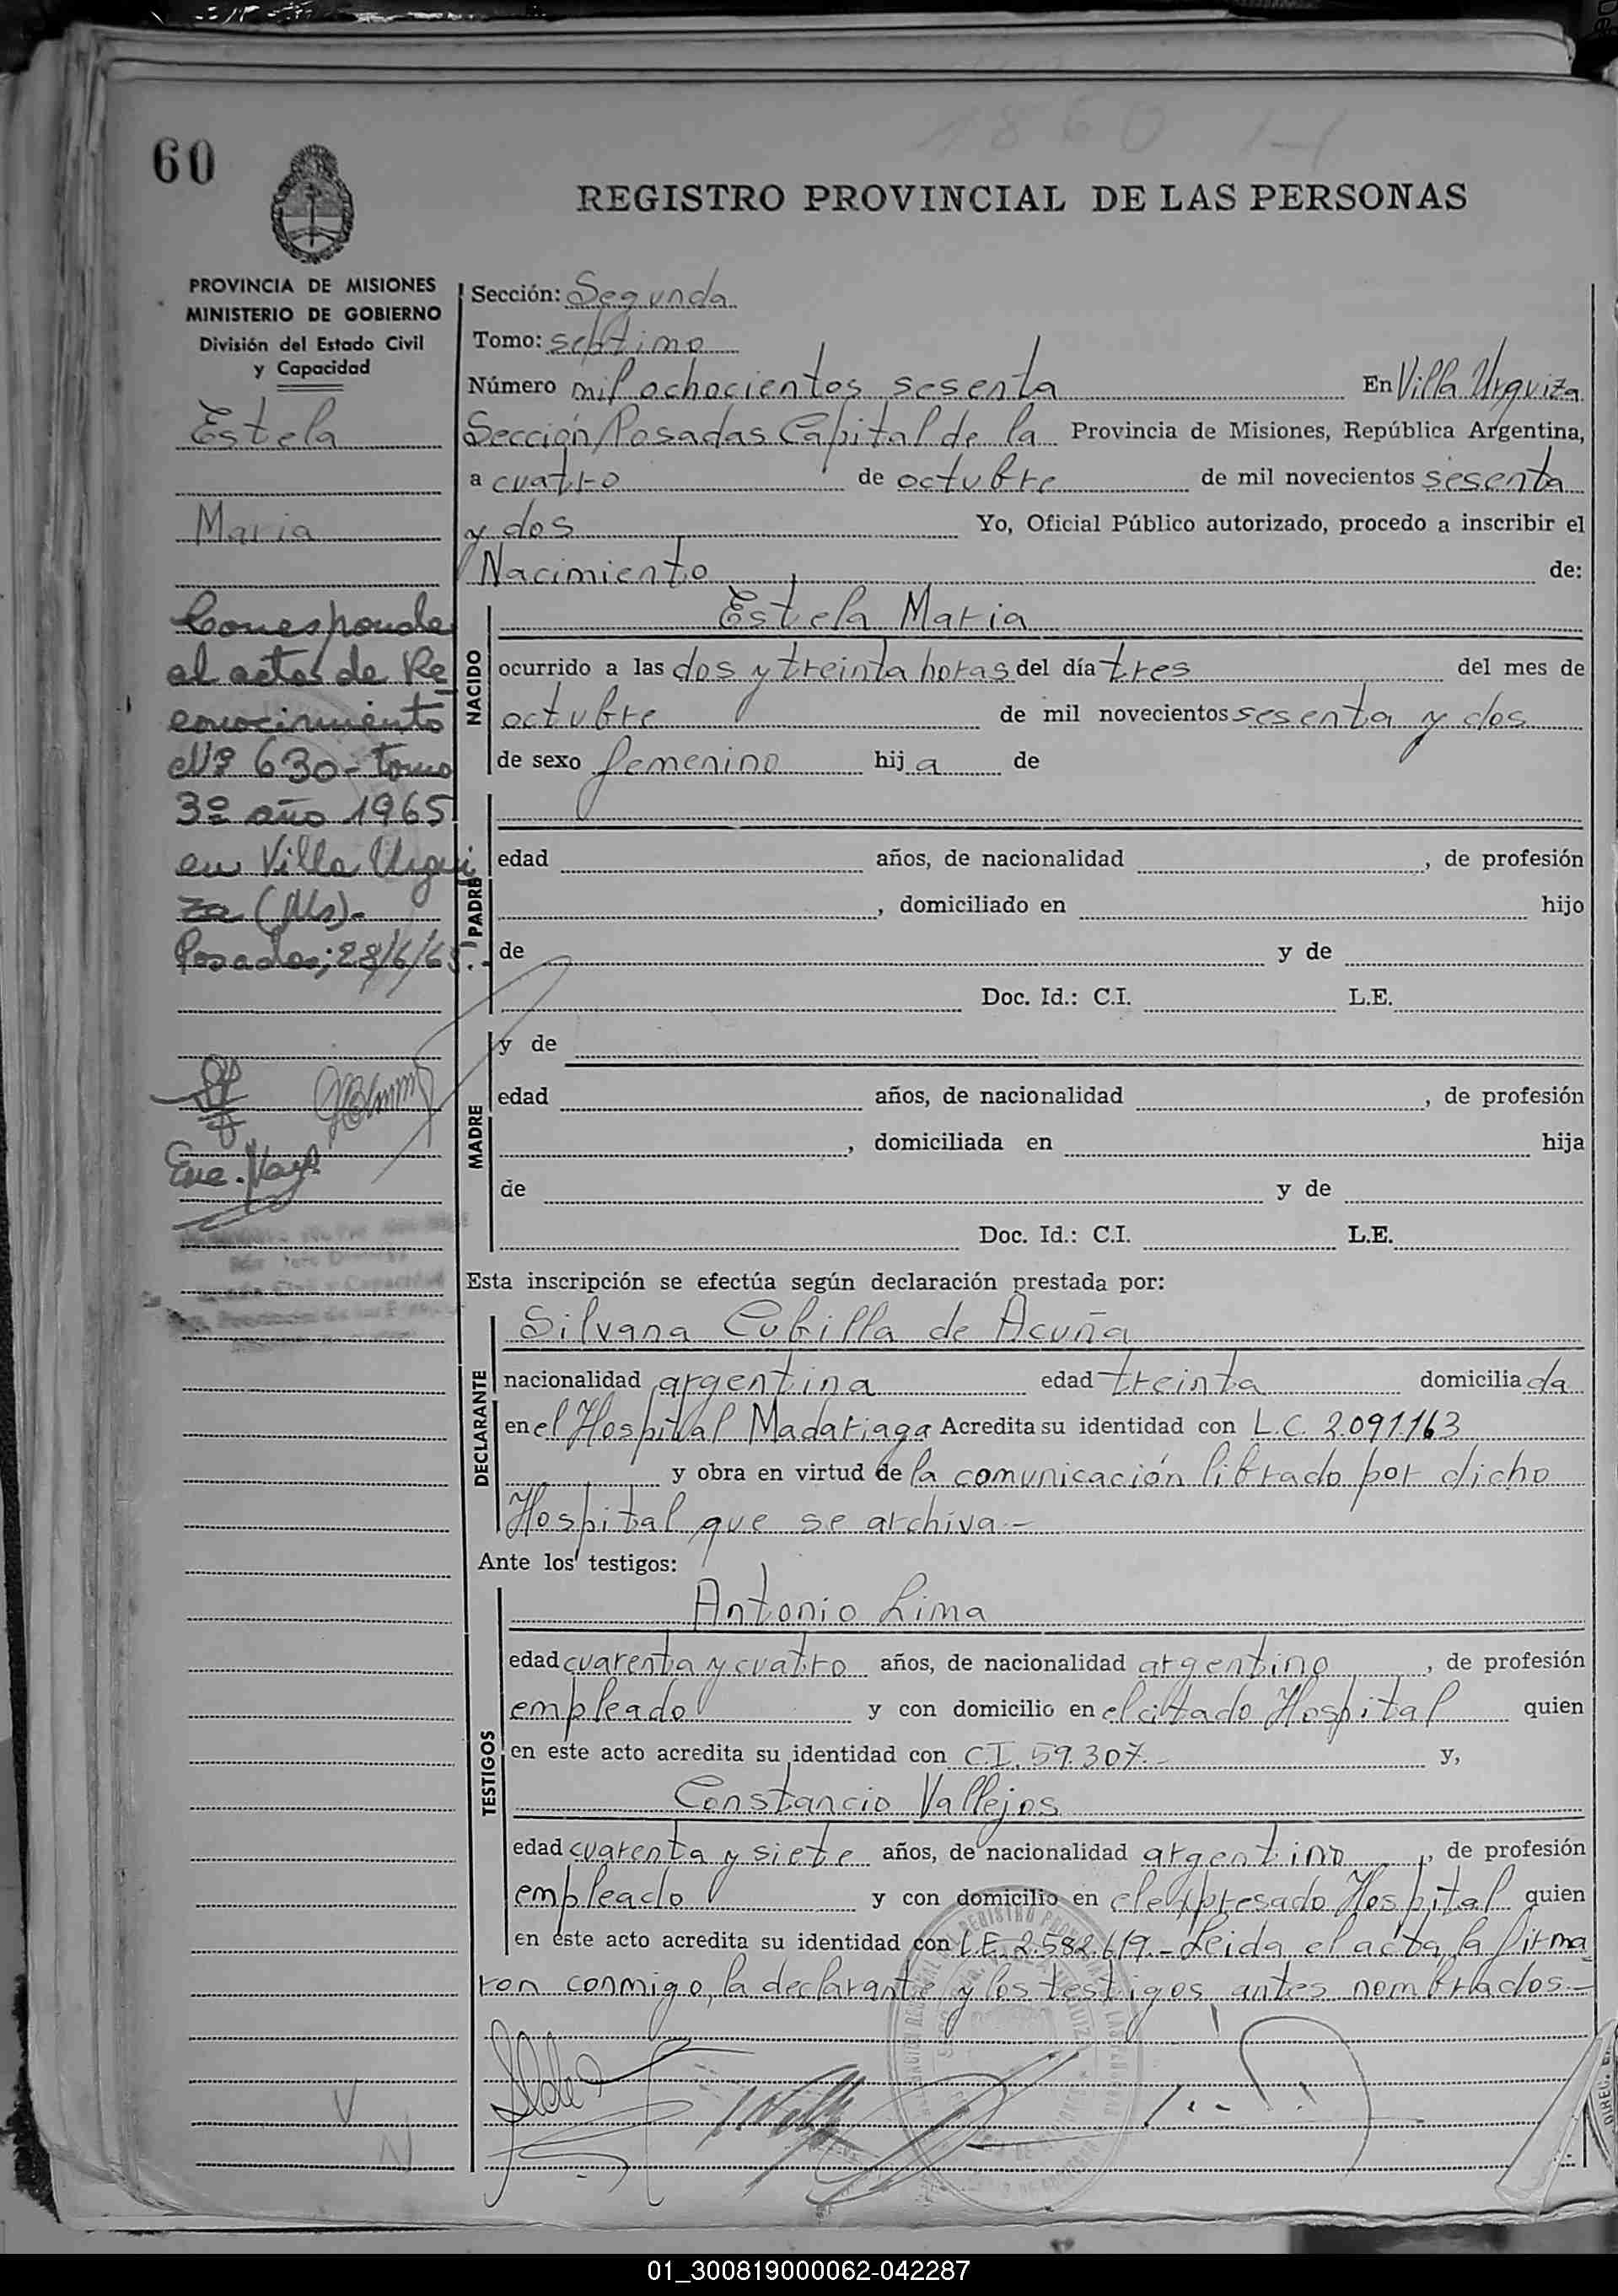 1860
60
REGISTRO PROVINCIAL DE LAS PERSONAS
PROVINCIA DE MISIONES
MINISTERIO DE GOBIERNO
División del Estado Civil
y Capacidad
Estela
Maria
Corresponde
al actas de Re
conocimiento
Nº 630 - tomo
3º año 1965
en Villa Urqui
za (Ms).
Posadas; 28/6/65.
Sección: Segunda
Tomo: septimo
Número mil ochocientos sesenta En Villa Urquiza
Sección Posadas Capital de la Provincia de Misiones, República Argentina,
a cuatro de octubre de mil novecientos sesenta
y dos Yo, Oficial Público autorizado, procedo a inscribir el
Nacimiento de:
NACIDO
Estela Maria
ocurrido a las dos y treinta horas del día tres del mes de
octubre de mil novecientos sesenta y dos
de sexo femenino hij a de
PADRE
edad años, de nacionalidad , de profesión
, domiciliado en hijo
de y de
Doc. Id.: C.I. L.E.
MADRE
y de
edad años, de nacionalidad , de profesión
, domiciliada en hija
de y de
Doc. Id.: C.I. L.E.
Esta inscripción se efectúa según declaración prestada por:
DECLARANTE
Silvana Cubilla de Acuña
nacionalidad argentina edad treinta domicilia da
en el Hospital Madariaga Acredita su identidad con L.C. 2.091.163
y obra en virtud de la comunicación librado por dicho
Hospital que se archiva.-
Ante los testigos:
TESTIGOS
Antonio Lima
edad cuarenta y cuatro años, de nacionalidad argentino, de profesión
empleado y con domicilio en el citado Hospital quien
en este acto acredita su identidad con C.I. 59.307.- y,
Constancio Vallejos
edad cuarenta y siete años, de nacionalidad argentino, de profesión
empleado y con domicilio en el expresado Hospital quien
en este acto acredita su identidad con L.E. 2.582.619.- Leida el acta, la firma
ron conmigo, la declarante y los testigos antes nombrados.-
01_300819000062-042287